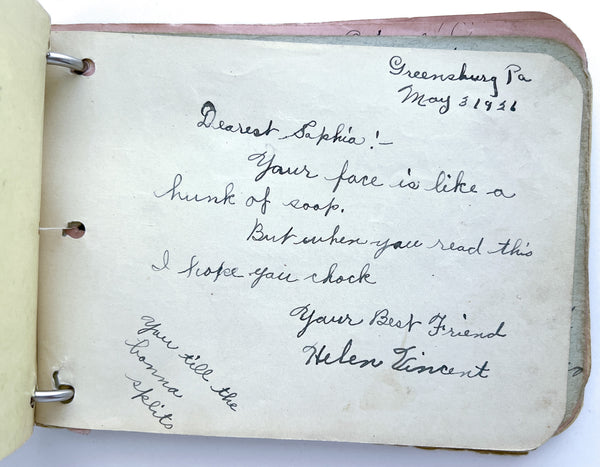 Greensburg Pa
May 3 1926
Dearest Saphia!—
Your face is like a
hunk of soap.
But when you read this
I hope you chock
Your Best Friend
Helen Vincent
You till the
bonna
splits